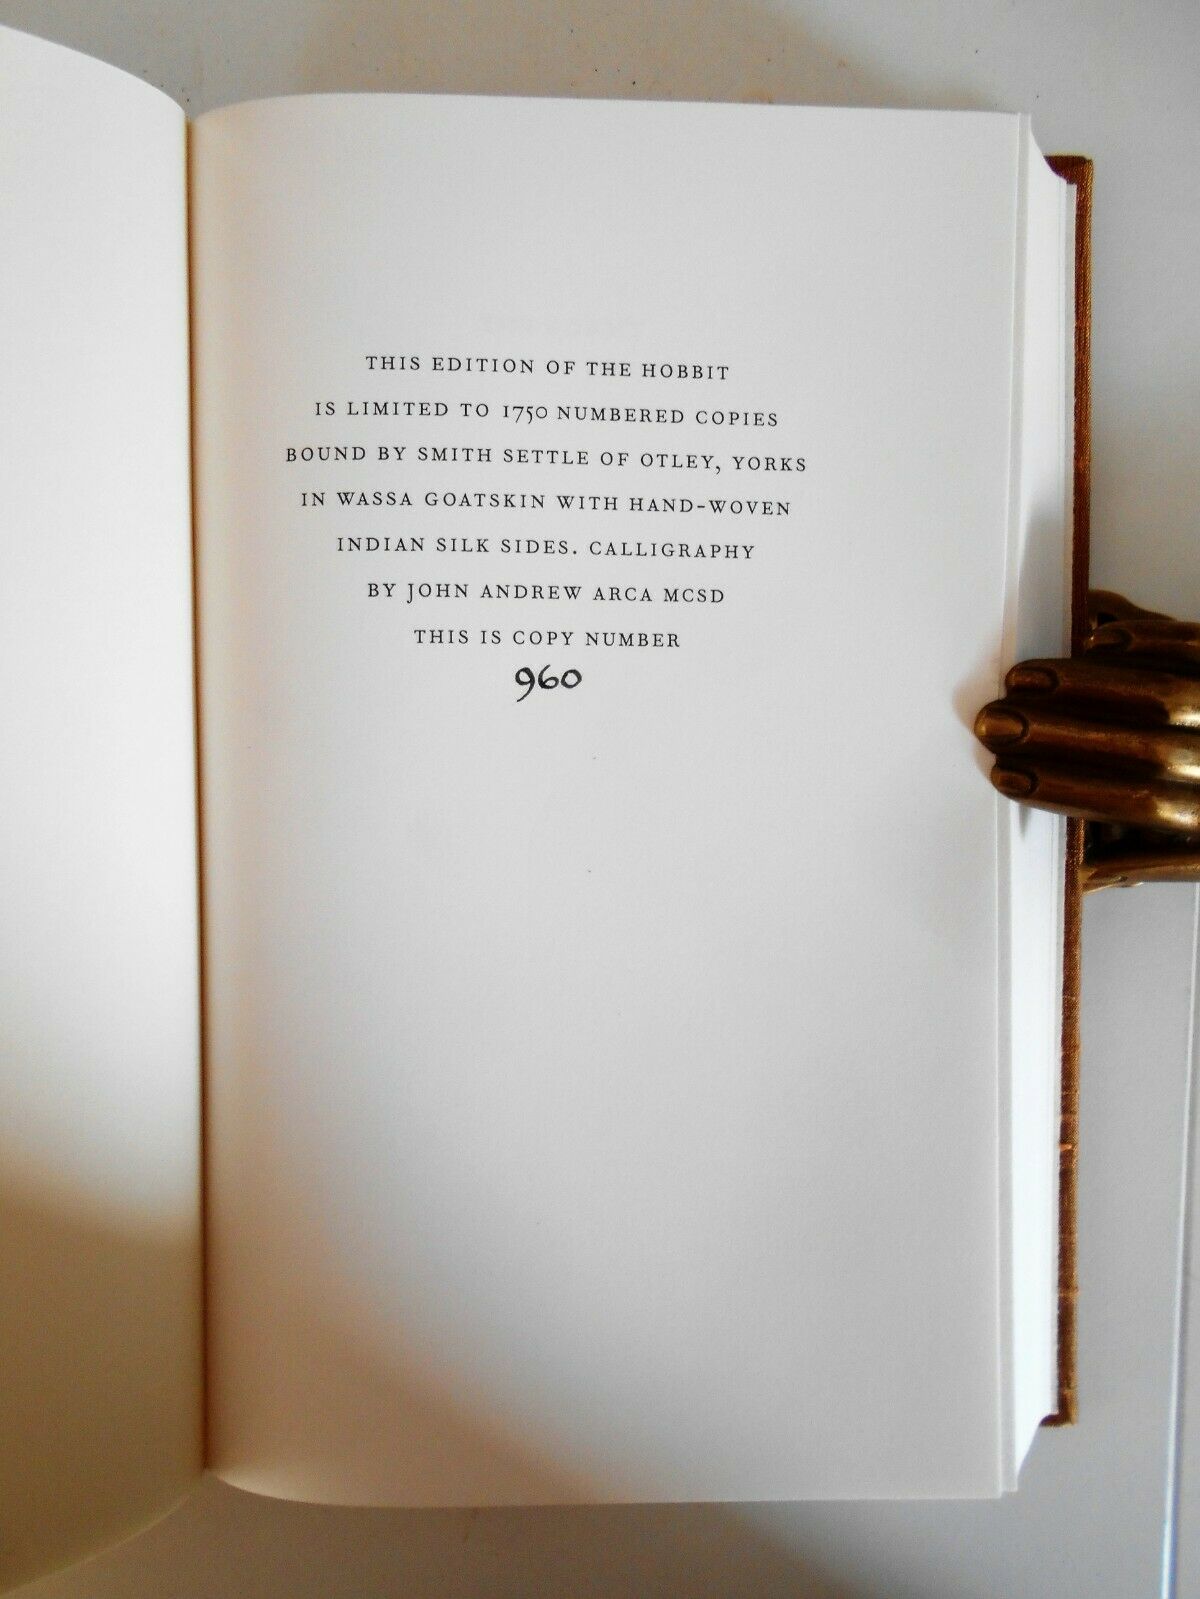 THIS EDITION OF THE HOBBIT
IS LIMITED TO 1750 NUMBERED COPIES
BOUND BY SMITH SETTLE OF OTLEY, YORKS
IN WASSA GOATSKIN WITH HAND-WOVEN
INDIAN SILK SIDES. CALLIGRAPHY
BY JOHN ANDREW ARCA MCSD
THIS IS COPY NUMBER
960